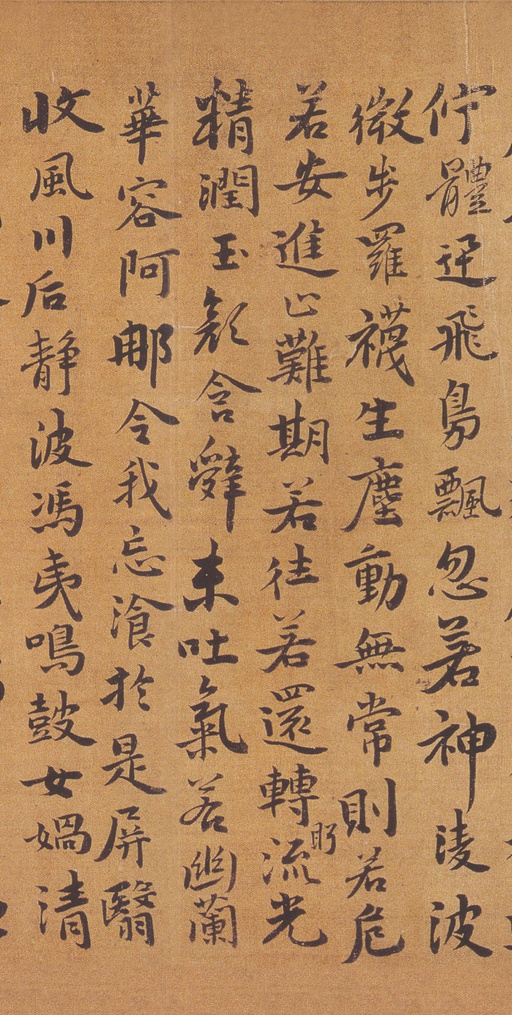 佇體迅飛鳧飄忽若神陵波
微步羅襪生塵動無常則若危
若安進止難期若往若還轉眄流光
精潤玉顏含辭未吐氣若幽蘭
華容阿那令我忘湌於是屏翳
收風川后静波馮夷鳴鼓女媧清